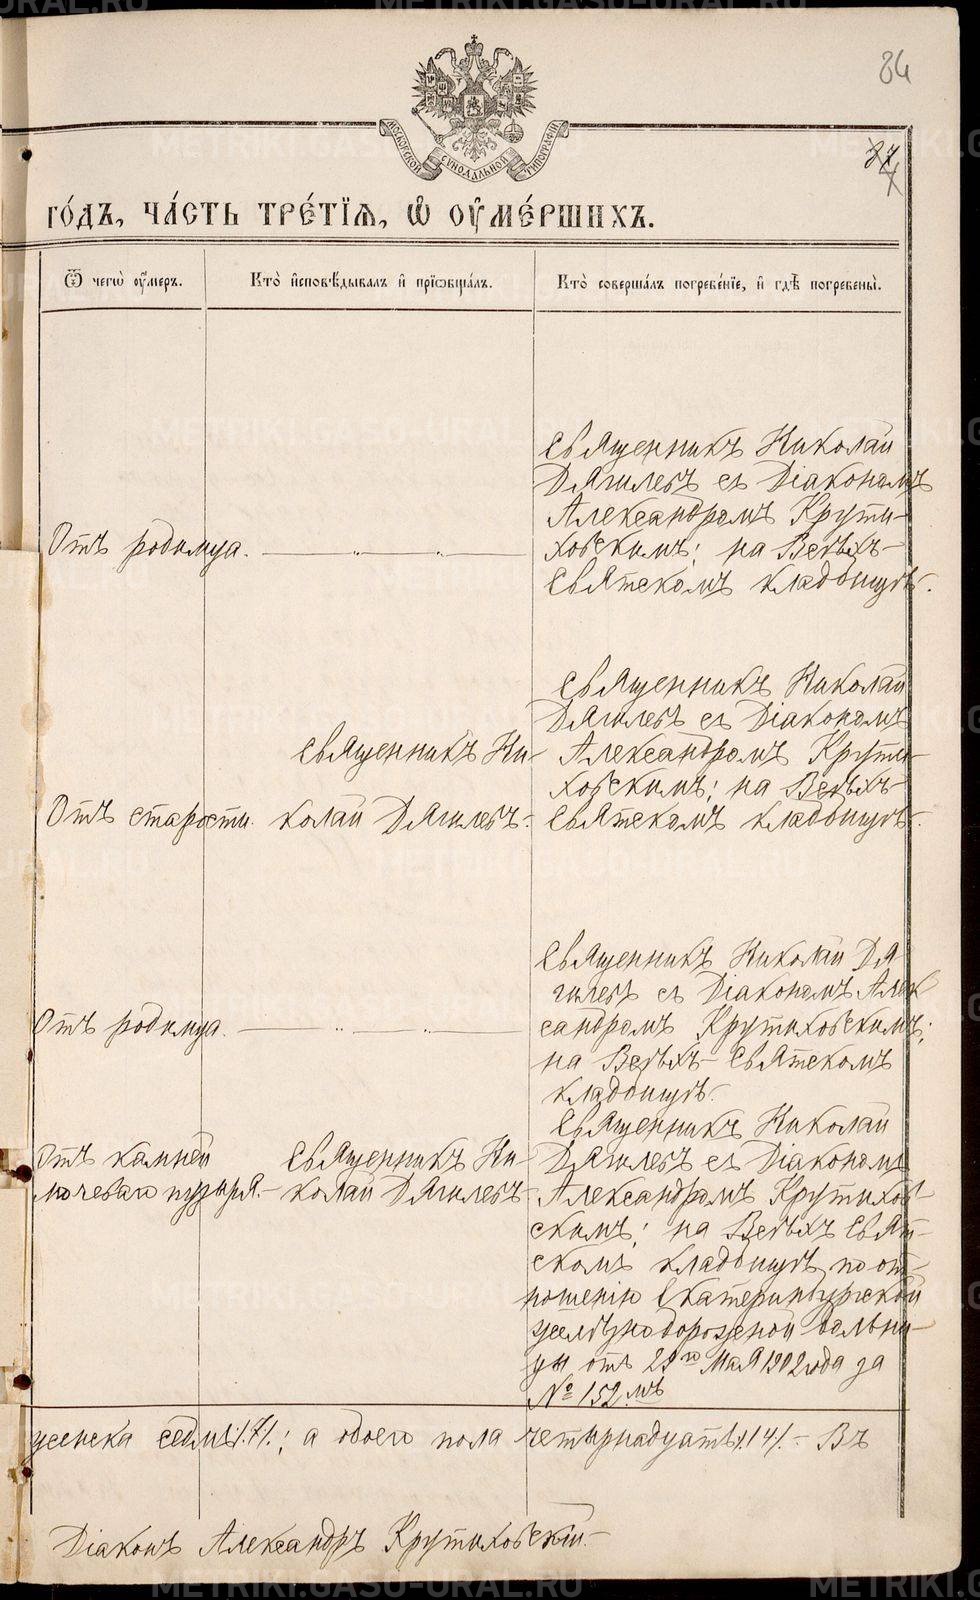 84
37
МОСКОВСКОЙ СѴНОДАЛЬНОЙ ТИПОГРАФІИ
го́дъ, ча́сть тре́тїѧ, ѡ҆ ᲂу҆ме́ршихъ.
Ѿ чегѡ̀ ᲂу҆́меръ.
Кто̀ и҆сповѣ́дывалъ и҆ прїѡбща́лъ.
Кто̀ соверша́лъ погребе́нїе, и҆ гдѣ̀ погребены̀.
Отъ родимца.
Священникъ Николай
Дягилевъ съ Діакономъ
Александромъ Крути-
ховскимъ; на Всѣхъ-
Святскомъ кладбищѣ.
Отъ старости.
Священникъ Ни-
колай Дягилевъ.
Священникъ Николай
Дягилевъ съ Діакономъ
Александромъ Крути-
ховскимъ; на Всѣхъ-
Святскомъ кладбищѣ.
Отъ родимца.
Священникъ Николай Дя-
гилевъ съ Діакономъ Алек
сандромъ Крутиховскимъ;
на Всѣхъ-Святскомъ
кладбищѣ.
Отъ камней
мочеваго пузыря.
Священникъ Ни-
колай Дягилевъ
Священникъ Николай
Дягилевъ съ Діакономъ
Александромъ Крутихов-
скимъ; на Всѣхъ Свят-
скомъ кладбищѣ, по от-
ношенію Екатеринбургской
желѣзнодорожной больни-
цы отъ 29го Мая 1902 года за
№ 152.мъ
женска седмь /.7/.; а обоего пола четырнадцать /.14/. – Въ
Діаконъ Александръ Крутиховскій
METRIKI.GASO-URAL.RU